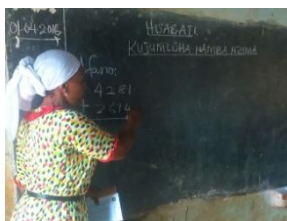 01-04-2016
HISABATI
KUJUMLISHA NAMBA NZIMA
Mfano:
4281
+ 2614